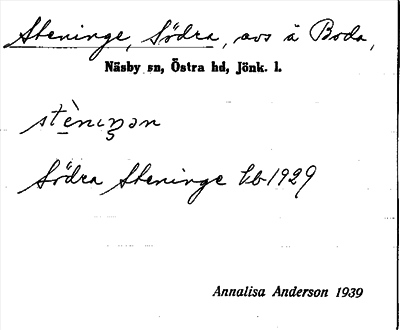 Steninge, Södra, avs å Boda,
Näsby sn, Östra hd, Jönk. l.
stèniŋən
Södra Steninge kb 1929
Annalisa Anderson 1939